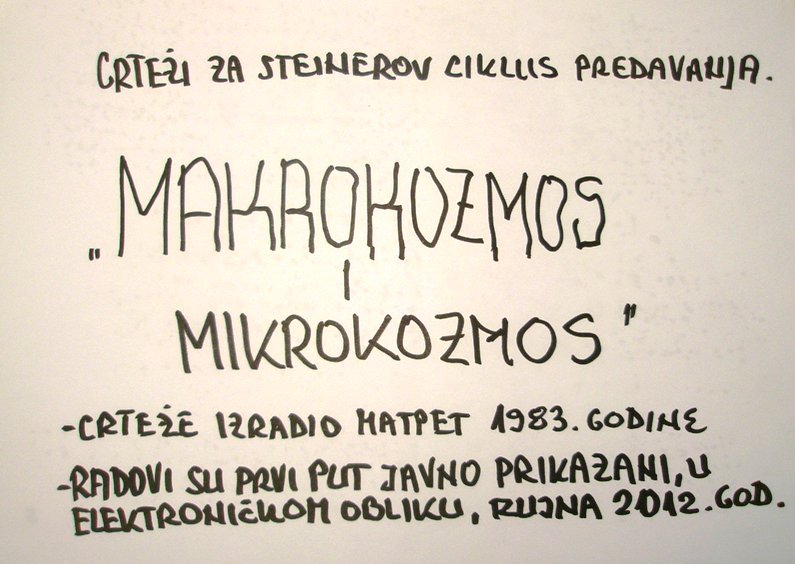 CRTEŽI ZA STEINEROV CIKLUS PREDAVANJA.
„MAKROKOZMOS
I
MIKROKOZMOS"
-CRTEŽE IZRADIO MATPET 1983. GODINE
-RADOVI SU PRVI PUT JAVNO PRIKAZANI, U
ELEKTRONIČKOM OBLIKU, RUJNA 2012. GOD.